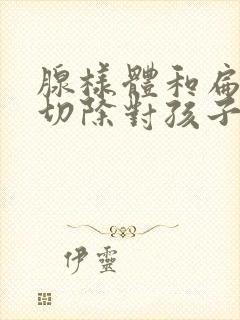 腺樣體和扁
切除對孩子
伊靈